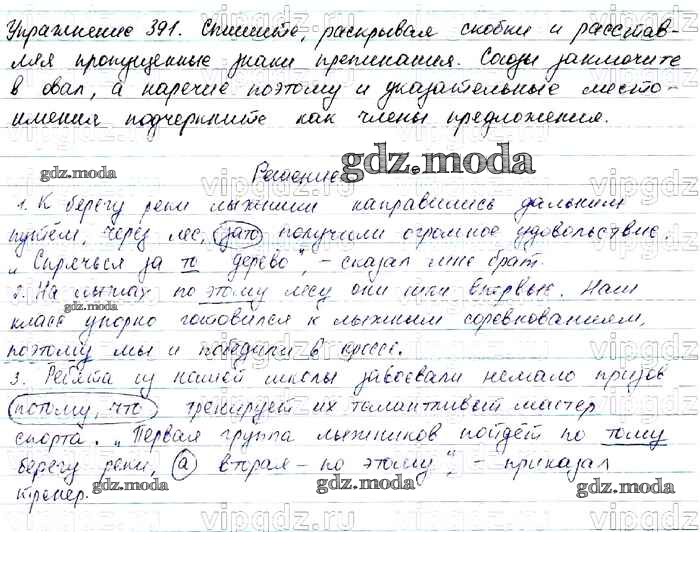 Упражнение 391. Спишите, раскрывая скобки и расстав-
ляя пропущенные знаки препинания. Союзы заключите
в овал, а наречие поэтому и указательные место-
имения подчеркните как члены предложения.
gdz.moda
Решение
gdz.moda
1. К берегу реки лыжники направились дальним
путём, через лес, зато получили огромное удовольствие.
„Спрячься за то дерево", – сказал мне брат.
2. На лыжах по этому лесу они шли впервые. Наш
gdz.moda
класс упорно готовился к лыжным соревнованиям,
поэтому мы и победили в кроссе.
3. Ребята из нашей школы завоевали немало призов
потому, что тренирует их талантливый мастер
спорта. „Первая группа лыжников пойдёт по тому
берегу реки, а вторая – по этому", – приказал
тренер.
gdz.moda
gdz.moda
vipgdz.ru